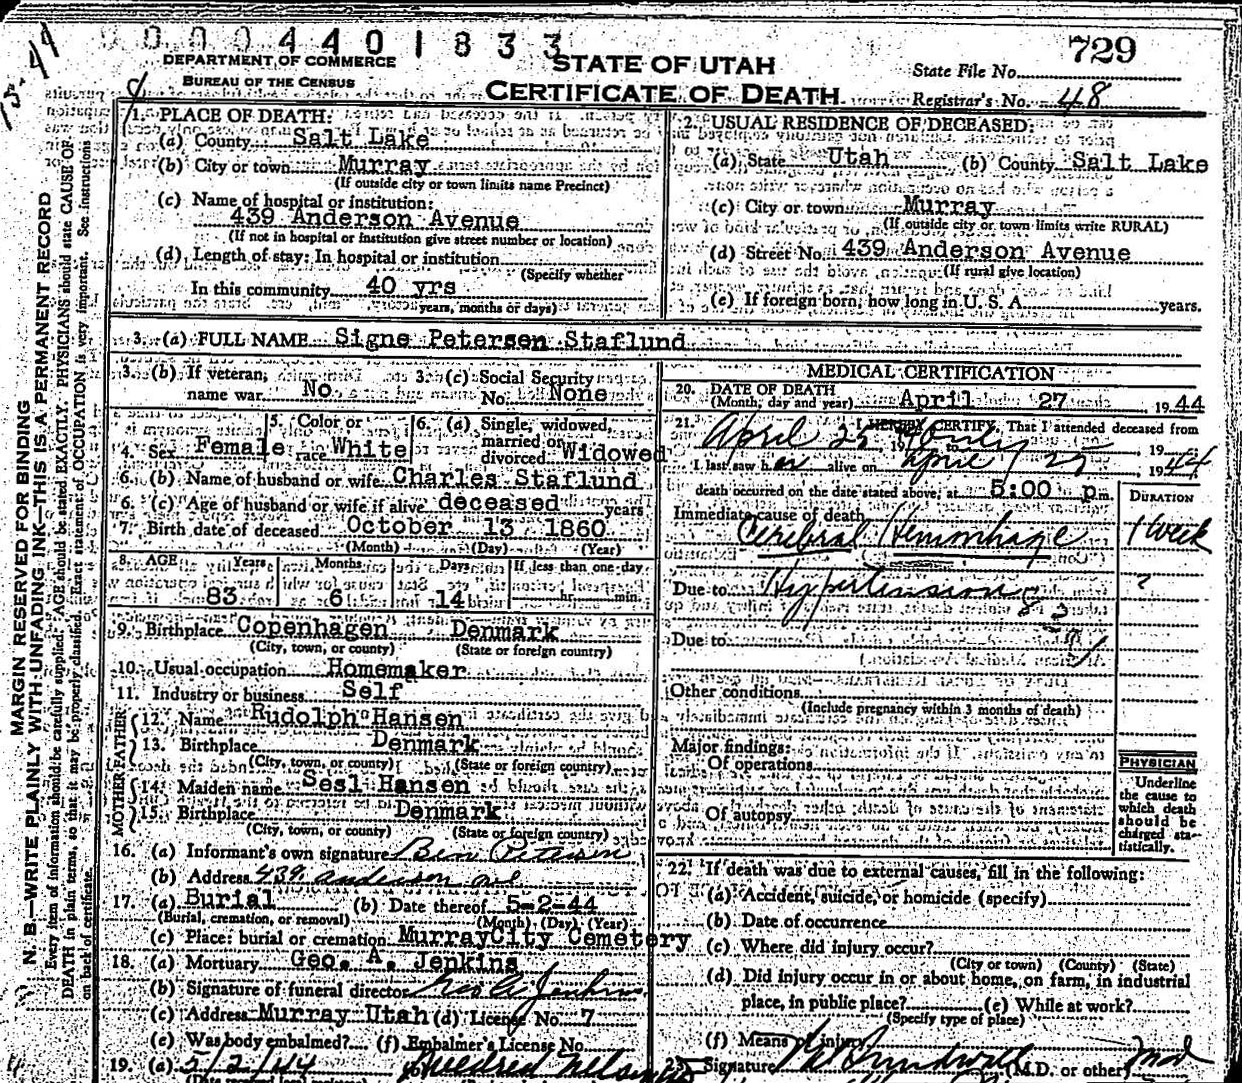 0004401833
DEPARTMENT OF COMMERCE
BUREAU OF THE CENSUS
STATE OF UTAH
CERTIFICATE OF DEATH
729
State File No.
Registrar's No. 48
MARGIN RESERVED FOR BINDING
N. B.—WRITE PLAINLY WITH UNFADING INK—THIS IS A PERMANENT RECORD
Every item of information should be carefully supplied. AGE should be stated EXACTLY. PHYSICIANS should state CAUSE OF
DEATH in plain terms, so that it may be properly classified. Exact statement of OCCUPATION is very important. See instructions
on back of certificate.
1. PLACE OF DEATH:
(a) County Salt Lake
(b) City or town Murray
(If outside city or town limits name Precinct)
(c) Name of hospital or institution:
439 Anderson Avenue
(If not in hospital or institution give street number or location)
(d) Length of stay: In hospital or institution
(Specify whether
In this community 40 yrs
years, months or days)
2. USUAL RESIDENCE OF DECEASED:
(a) State Utah (b) County Salt Lake
(c) City or town Murray
(If outside city or town limits write RURAL)
(d) Street No. 439 Anderson Avenue
(If rural give location)
(e) If foreign born, how long in U. S. A. years.
3. (a) FULL NAME Signe Petersen Staflund
3. (b) If veteran, name war No
3. (c) Social Security No. None
4. Sex Female
5. Color or race White
6. (a) Single, widowed, married or divorced Widowed
6. (b) Name of husband or wife Charles Staflund
6. (c) Age of husband or wife if alive deceased years
7. Birth date of deceased October 13 1860
(Month) (Day) (Year)
8. AGE Years Months Days If less than one day
83 6 14 hr. min.
9. Birthplace Copenhagen Denmark
(City, town, or county) (State or foreign country)
10. Usual occupation Homemaker
11. Industry or business Self
FATHER
12. Name Rudolph Hansen
13. Birthplace Denmark
(City, town, or county) (State or foreign country)
MOTHER
14. Maiden name Sesl Hansen
15. Birthplace Denmark
(City, town, or county) (State or foreign country)
16. (a) Informant's own signature Ben Petersen
(b) Address 439 Anderson Ave
17. (a) Burial (b) Date thereof 5-2-44
(Burial, cremation, or removal) (Month) (Day) (Year)
(c) Place: burial or cremation Murray City Cemetery
18. (a) Mortuary Geo. A. Jenkins
(b) Signature of funeral director Geo A Jenkins
(c) Address Murray Utah (d) License No. 7
(e) Was body embalmed? (f) Embalmer's License No.
19. (a) 5/2/44
MEDICAL CERTIFICATION
20. DATE OF DEATH
(Month, day and year) April 27 1944
21. I HEREBY CERTIFY, That I attended deceased from
April 25 19 only, 19
I last saw her alive on April 1944
death occurred on the date stated above, at 5:00 p.m.
DURATION
Immediate cause of death
Cerebral Hemorrhage 1 Week
Due to Hypertension ?
Due to
Other conditions
(Include pregnancy within 3 months of death)
Major findings:
Of operations
Of autopsy
PHYSICIAN
Underline
the cause to
which death
should be
charged sta-
tistically.
22. If death was due to external causes, fill in the following:
(a) Accident, suicide, or homicide (specify)
(b) Date of occurrence
(c) Where did injury occur?
(City or town) (County) (State)
(d) Did injury occur in or about home, on farm, in industrial
place, in public place? (e) While at work?
(Specify type of place)
(f) Means of injury
Signature (M.D. or other)